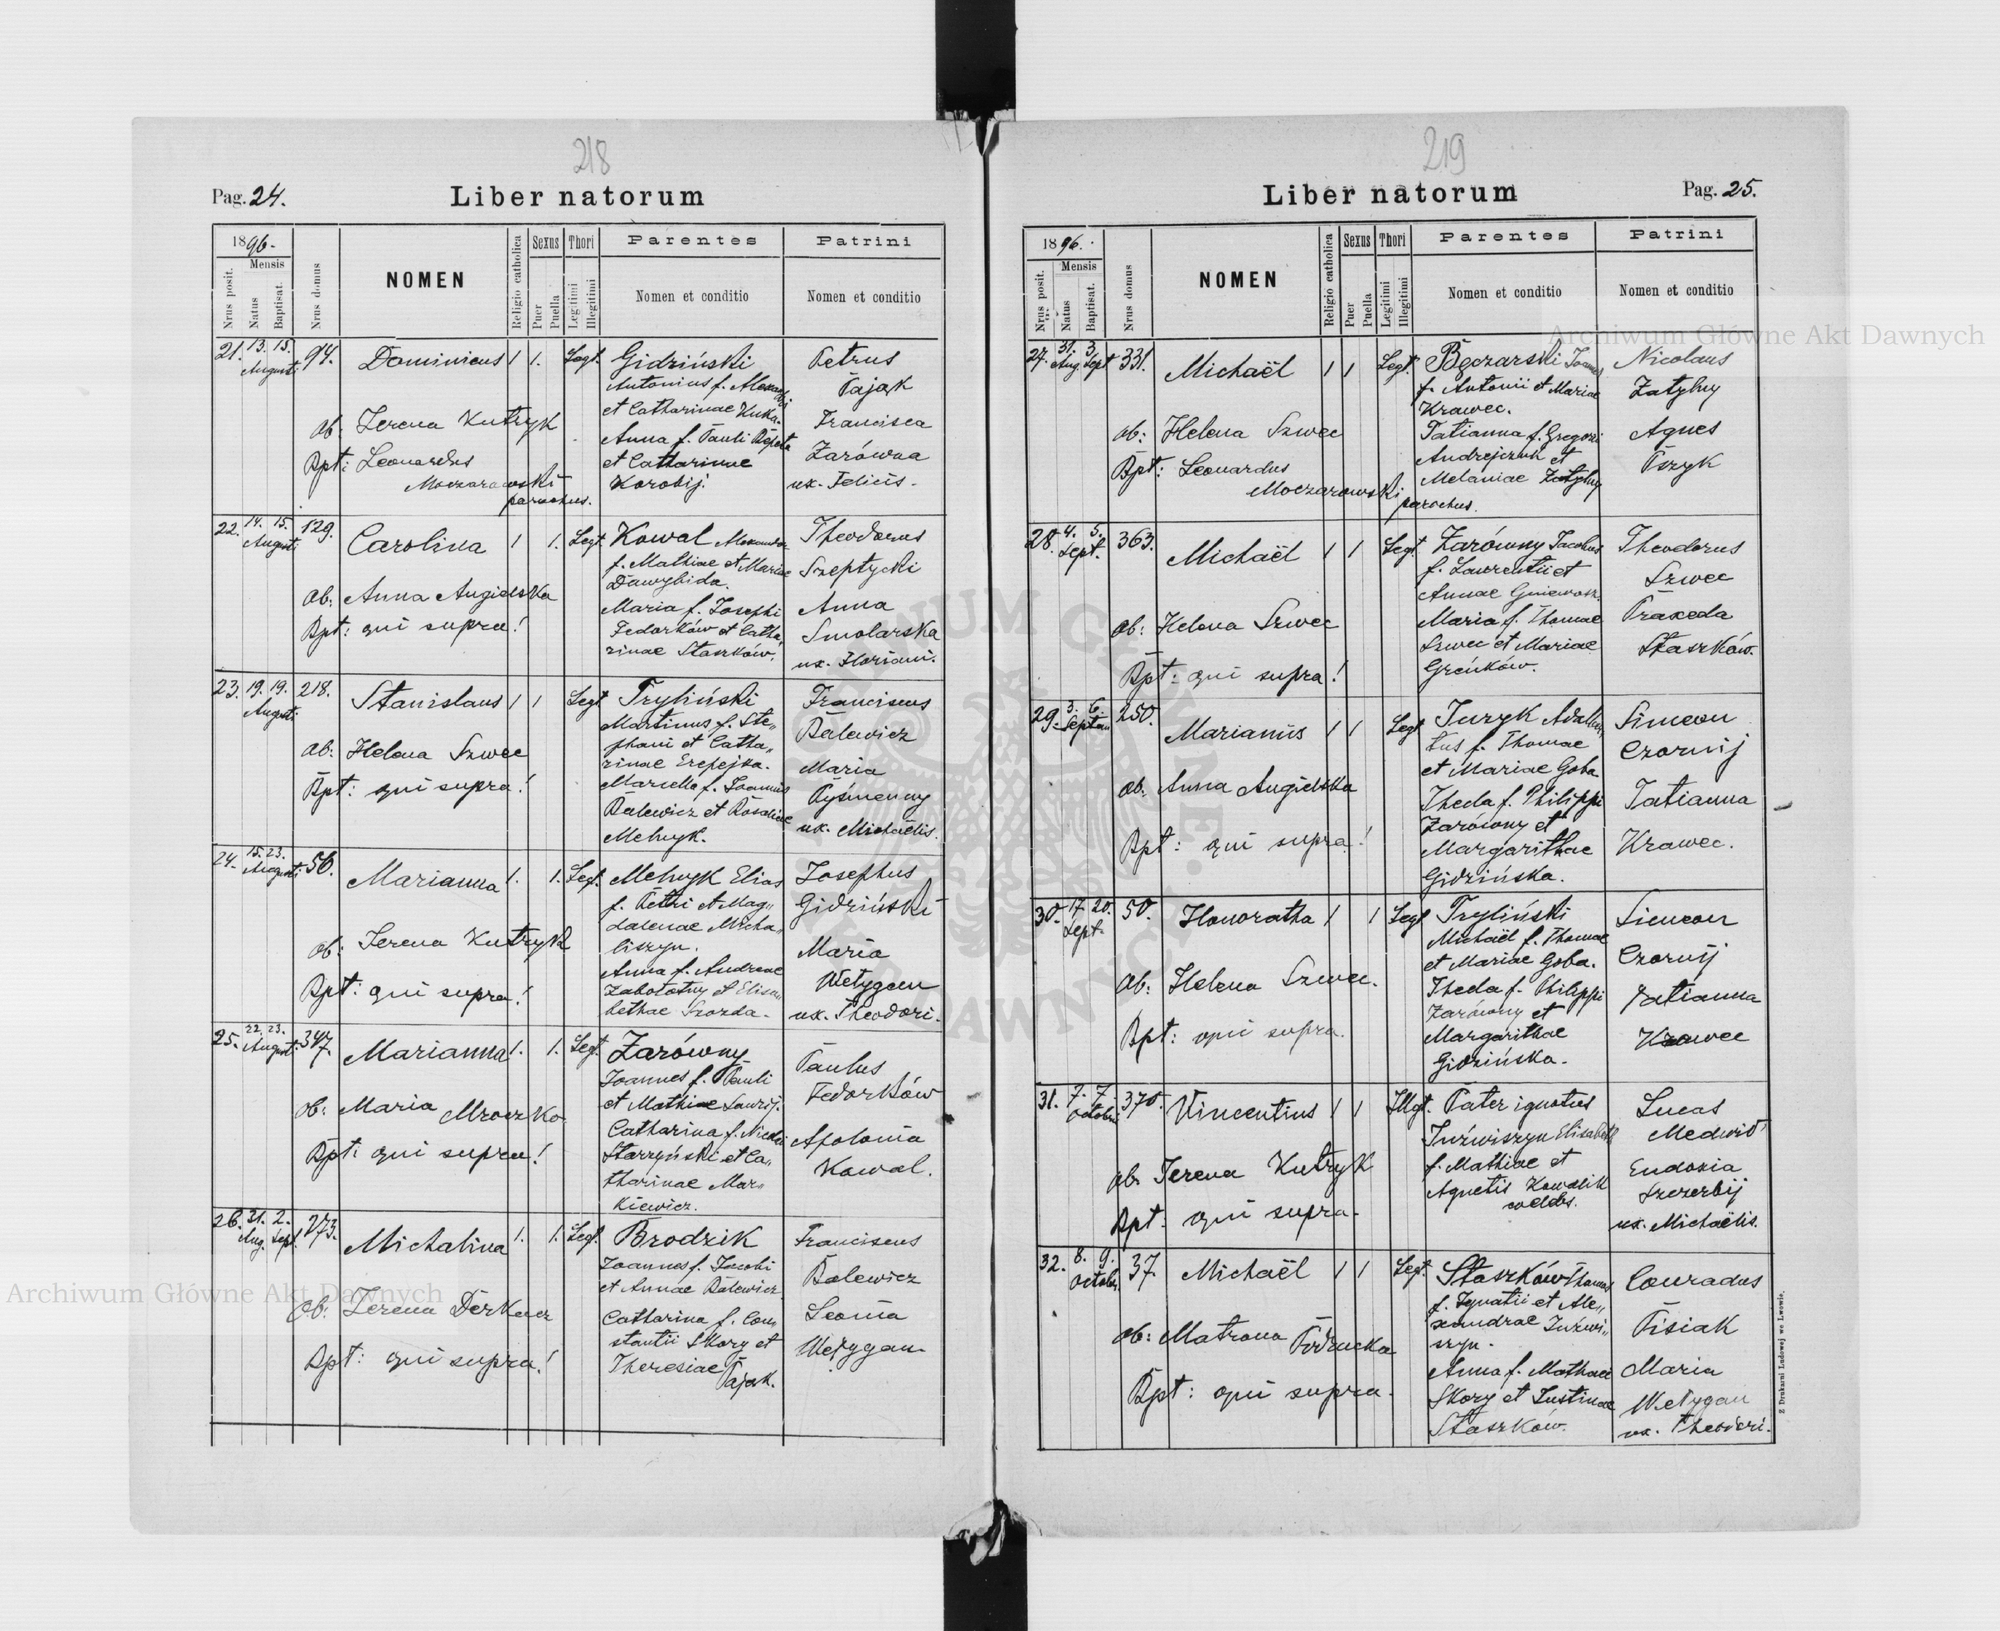 218
Pag. 24.
Liber natorum
1896.
Mensis
Nrus posit.
Natus
Baptisat.
Nrus domus
NOMEN
Religio catholica
Sexus
Puer
Puella
Thori
Legitimi
Illegitimi
Parentes
Nomen et conditio
Patrini
Nomen et conditio
21. 13. 15. Augusti 94. Dominicus 1 1. Legt.
ob: Terena Kutryk
Bpt: Leonardus
Moczarowski
parochus.
Gidziński
Antonius f. Alexandri
et Catharinae Kuka.
Anna f. Pauli Repeta
et Catharinae
Korobij.
Petrus
Pająk
Francisca
Zarówna
ux. Felicis.
22. 14. 15. Augusti 129. Carolina 1 1. Legt.
ob: Anna Augielska
Bpt: qui supra!
Kowal Alexander
f. Mathiae et Mariae
Dawybida.
Maria f. Josephi
Fedorków et Catha,,
rinae Staszków.
Theodorus
Szeptycki
Anna
Smolarska
ux. Floriani.
23. 19. 19. Augusti 218. Stanislaus 1 1 Legt.
ob: Helena Szwec
Bpt: qui supra!
Tryliński
Martinus f. Ste,,
phani et Catha,,
rinae Czepejka.
Marcella f. Joannis
Balewicz et Rosaliae
Melnyk.
Franciscus
Balewicz
Maria
Pyśmenny
ux. Michaëlis.
24. 15. 23. Augusti 56. Marianna 1. 1. Legt.
ob: Terena Kutryk
Bpt: qui supra!
Melnyk Elias
f. Petri et Mag,,
dalenae Micha,,
liszyn.
Anna f. Andreae
Zabolotny et Elisa,,
bethae Szozda.
Josephus
Gidziński
Maria
Wetygan
ux. Theodori.
25. 22. 23. August. 347. Marianna 1. 1. Legt.
ob: Maria Mroczko.
Bpt: qui supra!
Zarówny
Joannes f. Pauli
et Mathiae Laurij.
Catharina f. Nicolai
Starzyński et Ca,,
tharinae Mar,,
kiewicz.
Paulus
Fedorków
Apolonia
Kowal.
26. 31. Aug. 2. Sept. 273. Michalina 1. 1. Legt.
ob: Terena Derkacz
Bpt: qui supra!
Brodzik
Joannes f. Jacobi
et Annae Balewicz
Catharina f. Con,,
stantii Skory et
Theresiae Pająk.
Franciscus
Balewicz
Leonia
Wetygan
219
Liber natorum
Pag. 25.
1896.
Mensis
Nrus posit.
Natus
Baptisat.
Nrus domus
NOMEN
Religio catholica
Sexus
Puer
Puella
Thori
Legitimi
Illegitimi
Parentes
Nomen et conditio
Patrini
Nomen et conditio
27. 31. Aug. 3. Sept 331. Michaël 1 1 Legt.
ob: Helena Szwec
Bpt: Leonardus
Moczarowski
parochus.
Bęczarski Joannes
f. Antonii et Mariae
Krawec.
Tatianna f. Gregorii
Andrejczuk et
Melaniae Zatylny
Nicolaus
Zatylny
Agnes
Pszyk
28. 4. 5. Sept. 363. Michaël 1 1 Legt.
ob: Helena Szwec
Bpt: qui supra!
Zarówny Jacobus
f. Laurentii et
Annae Gniewosz.
Maria f. Thomae
Szwec et Mariae
Greńków.
Theodorus
Szwec
Praxeda
Staszków.
29. 3. 6. Septem 250. Marianus 1 1 Legt
ob: Anna Augielska
Bpt: qui supra!
Juzyk Adalber,,
tus f. Thomae
et Mariae Goba
Thecla f. Philippi
Zarówny et
Margarithae
Gidzińska.
Simeon
Czornij
Tatianna
Krawec.
30. 17 20. Sept. 50. Honoratha 1 1 Legt
ob: Helena Szwec.
Bpt: qui supra.
Tryliński
Michaël f. Thomae
et Mariae Goba.
Thecla f. Philippi
Zarówny et
Margarithae
Gidzińska.
Simeon
Czornij
Tatianna
Krawec
31. 7. 7. Octobri 370. Vincentius 1 1 Illgt.
ob. Terena Kutryk
Bpt: qui supra.
Pater ignotus
Juźwiszyn Elisabeth
f. Mathiae et
Agnetis Kowalik
coelebs.
Lucas
Medwid
Eudoxia
Szczerbij
ux. Michaëlis.
32. 8. 9. Octobr. 37. Michaël 1 1 Legt.
ob: Matrona Podzucka
Bpt: qui supra.
Staszków Thomas
f. Ignatii et Ale,,
xandrae Juźwi,,
szyn.
Anna f. Mathaei
Skory et Justinae
Staszków.
Conradus
Pisiak
Maria
Wetygan
ux. Theodori.
Z Drukarni Ludowej we Lwowie.
Archiwum Główne Akt Dawnych
Archiwum Główne Akt Dawnych